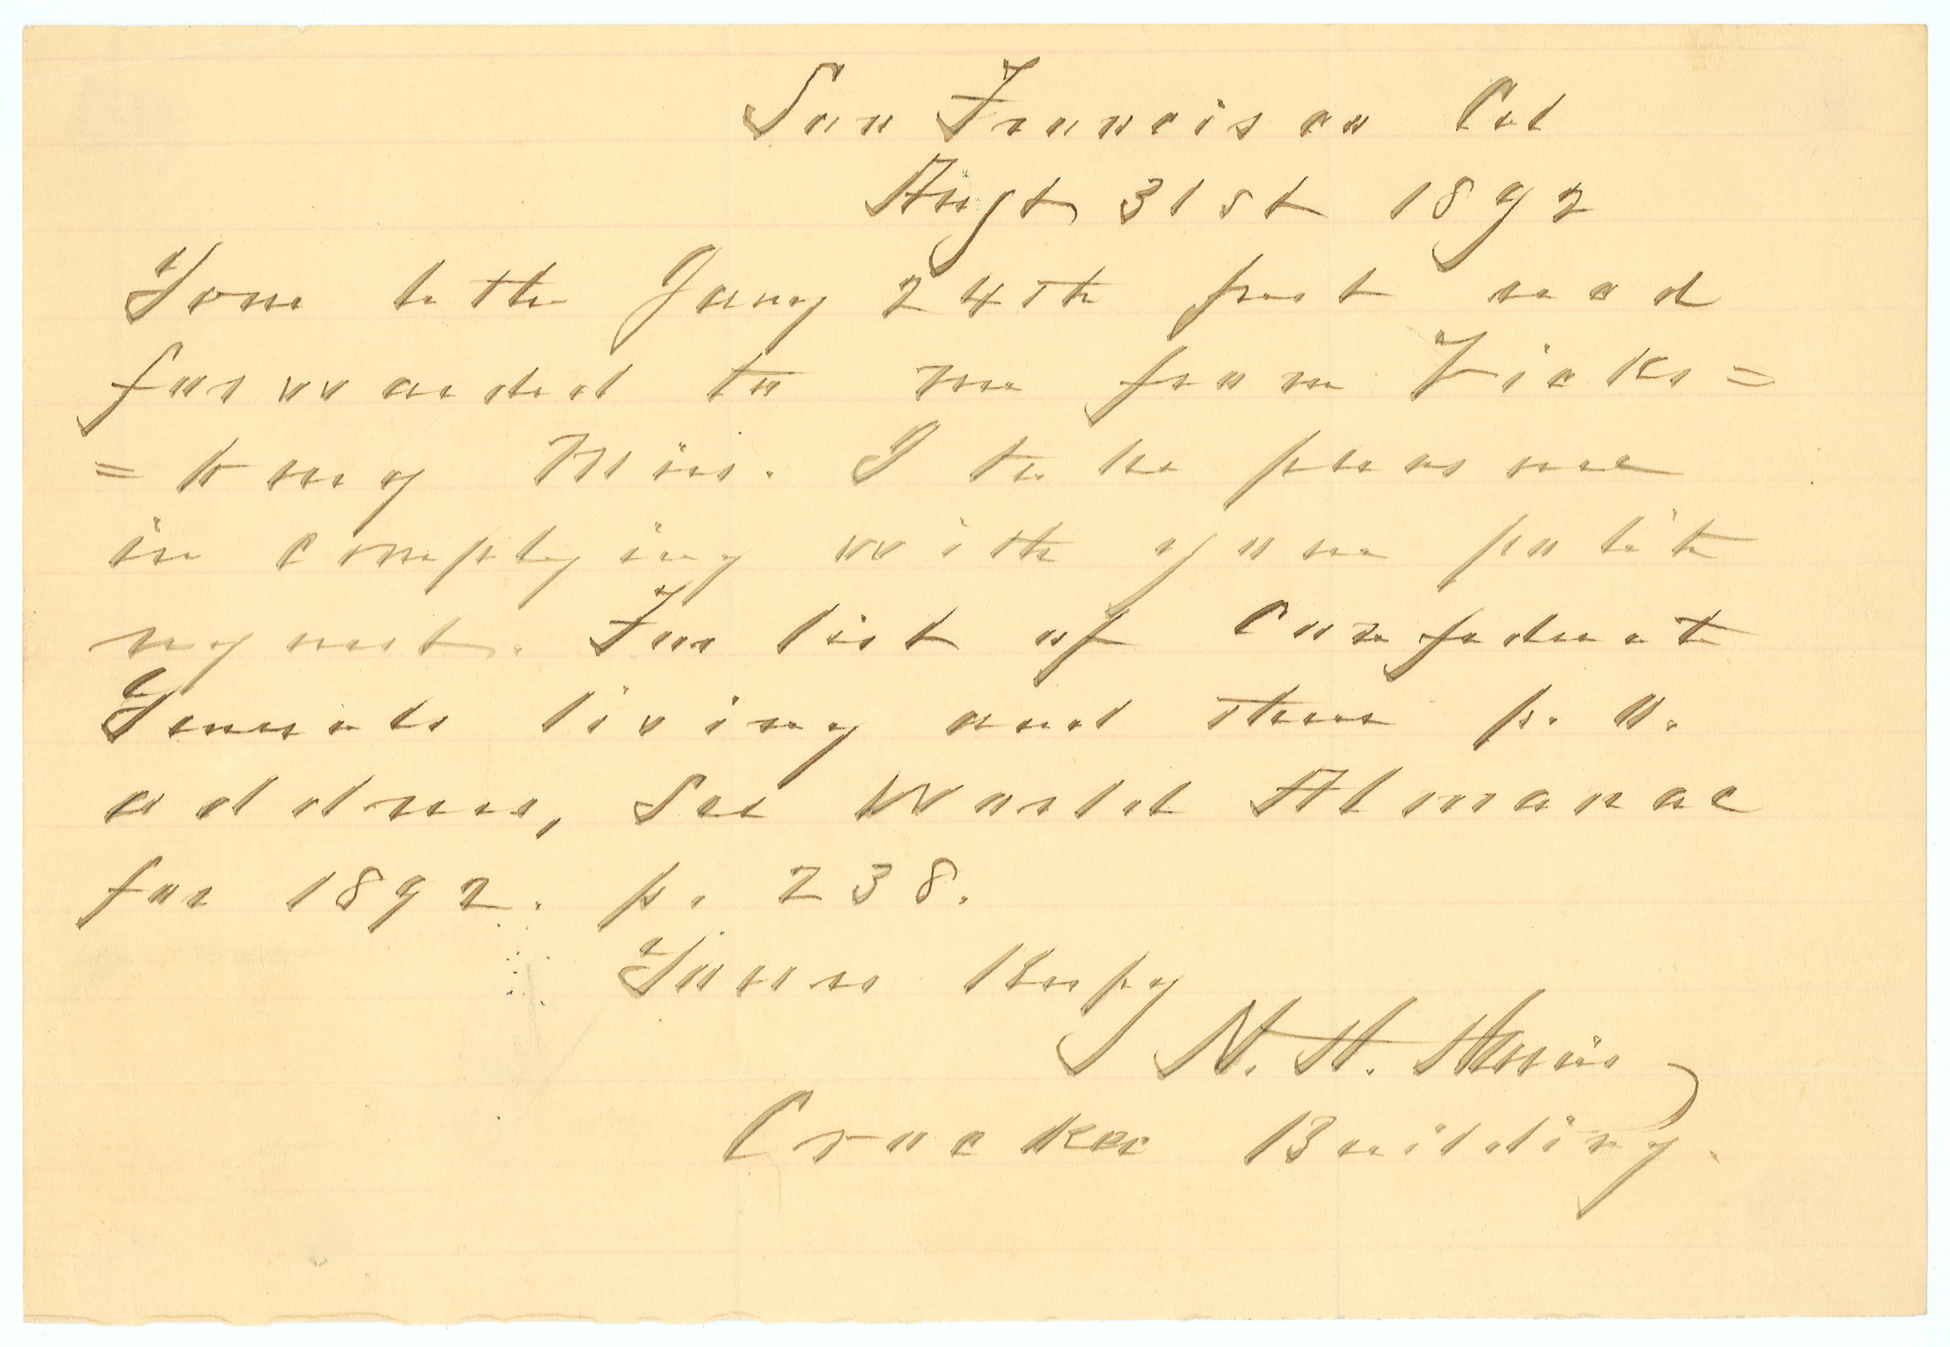 San Francisco Cal
Augt 31st 1892
Your letter Jany 24th just recd
forwarded to me from Vicks=
=burg Miss. I take pleasure
in complying with your polite
request. For list of Confederate
Generals living and their p. o.
address, See World Almanac
for 1892. p. 238.
Yours Respy
N. H. Harris
Crocker Building.